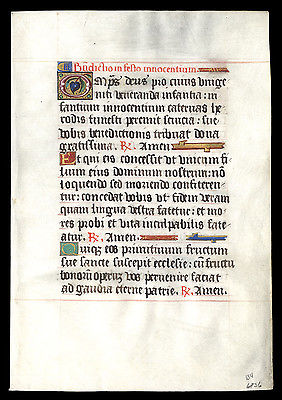 Bñdictio in festo innocentium.
Omp̃s deus pro cuius vnige
niti veneranda infantia: in
fantium innocentium cateruas he
rodis funesti peremit seuicia: sue
vobis benedictionis tribuat dona
gratissima. R. Amen
Et qui eis concessit vt vnicum fi
lium eius dominum nostrum: nõ
loquendo sed moriendo confiteren
tur: concedat vobis vt fidem veram
quam lingua vestra fatetur: et mo
res probi et vita inculpabilis fate
atur. R. Amen.
Quiqz eos primitiuum fructum
sue sancte suscepit ecclesie: cũ fructu
bonorũ operũ vos peruenire faciat
ad gaudia eterne patrie. R. Amen.